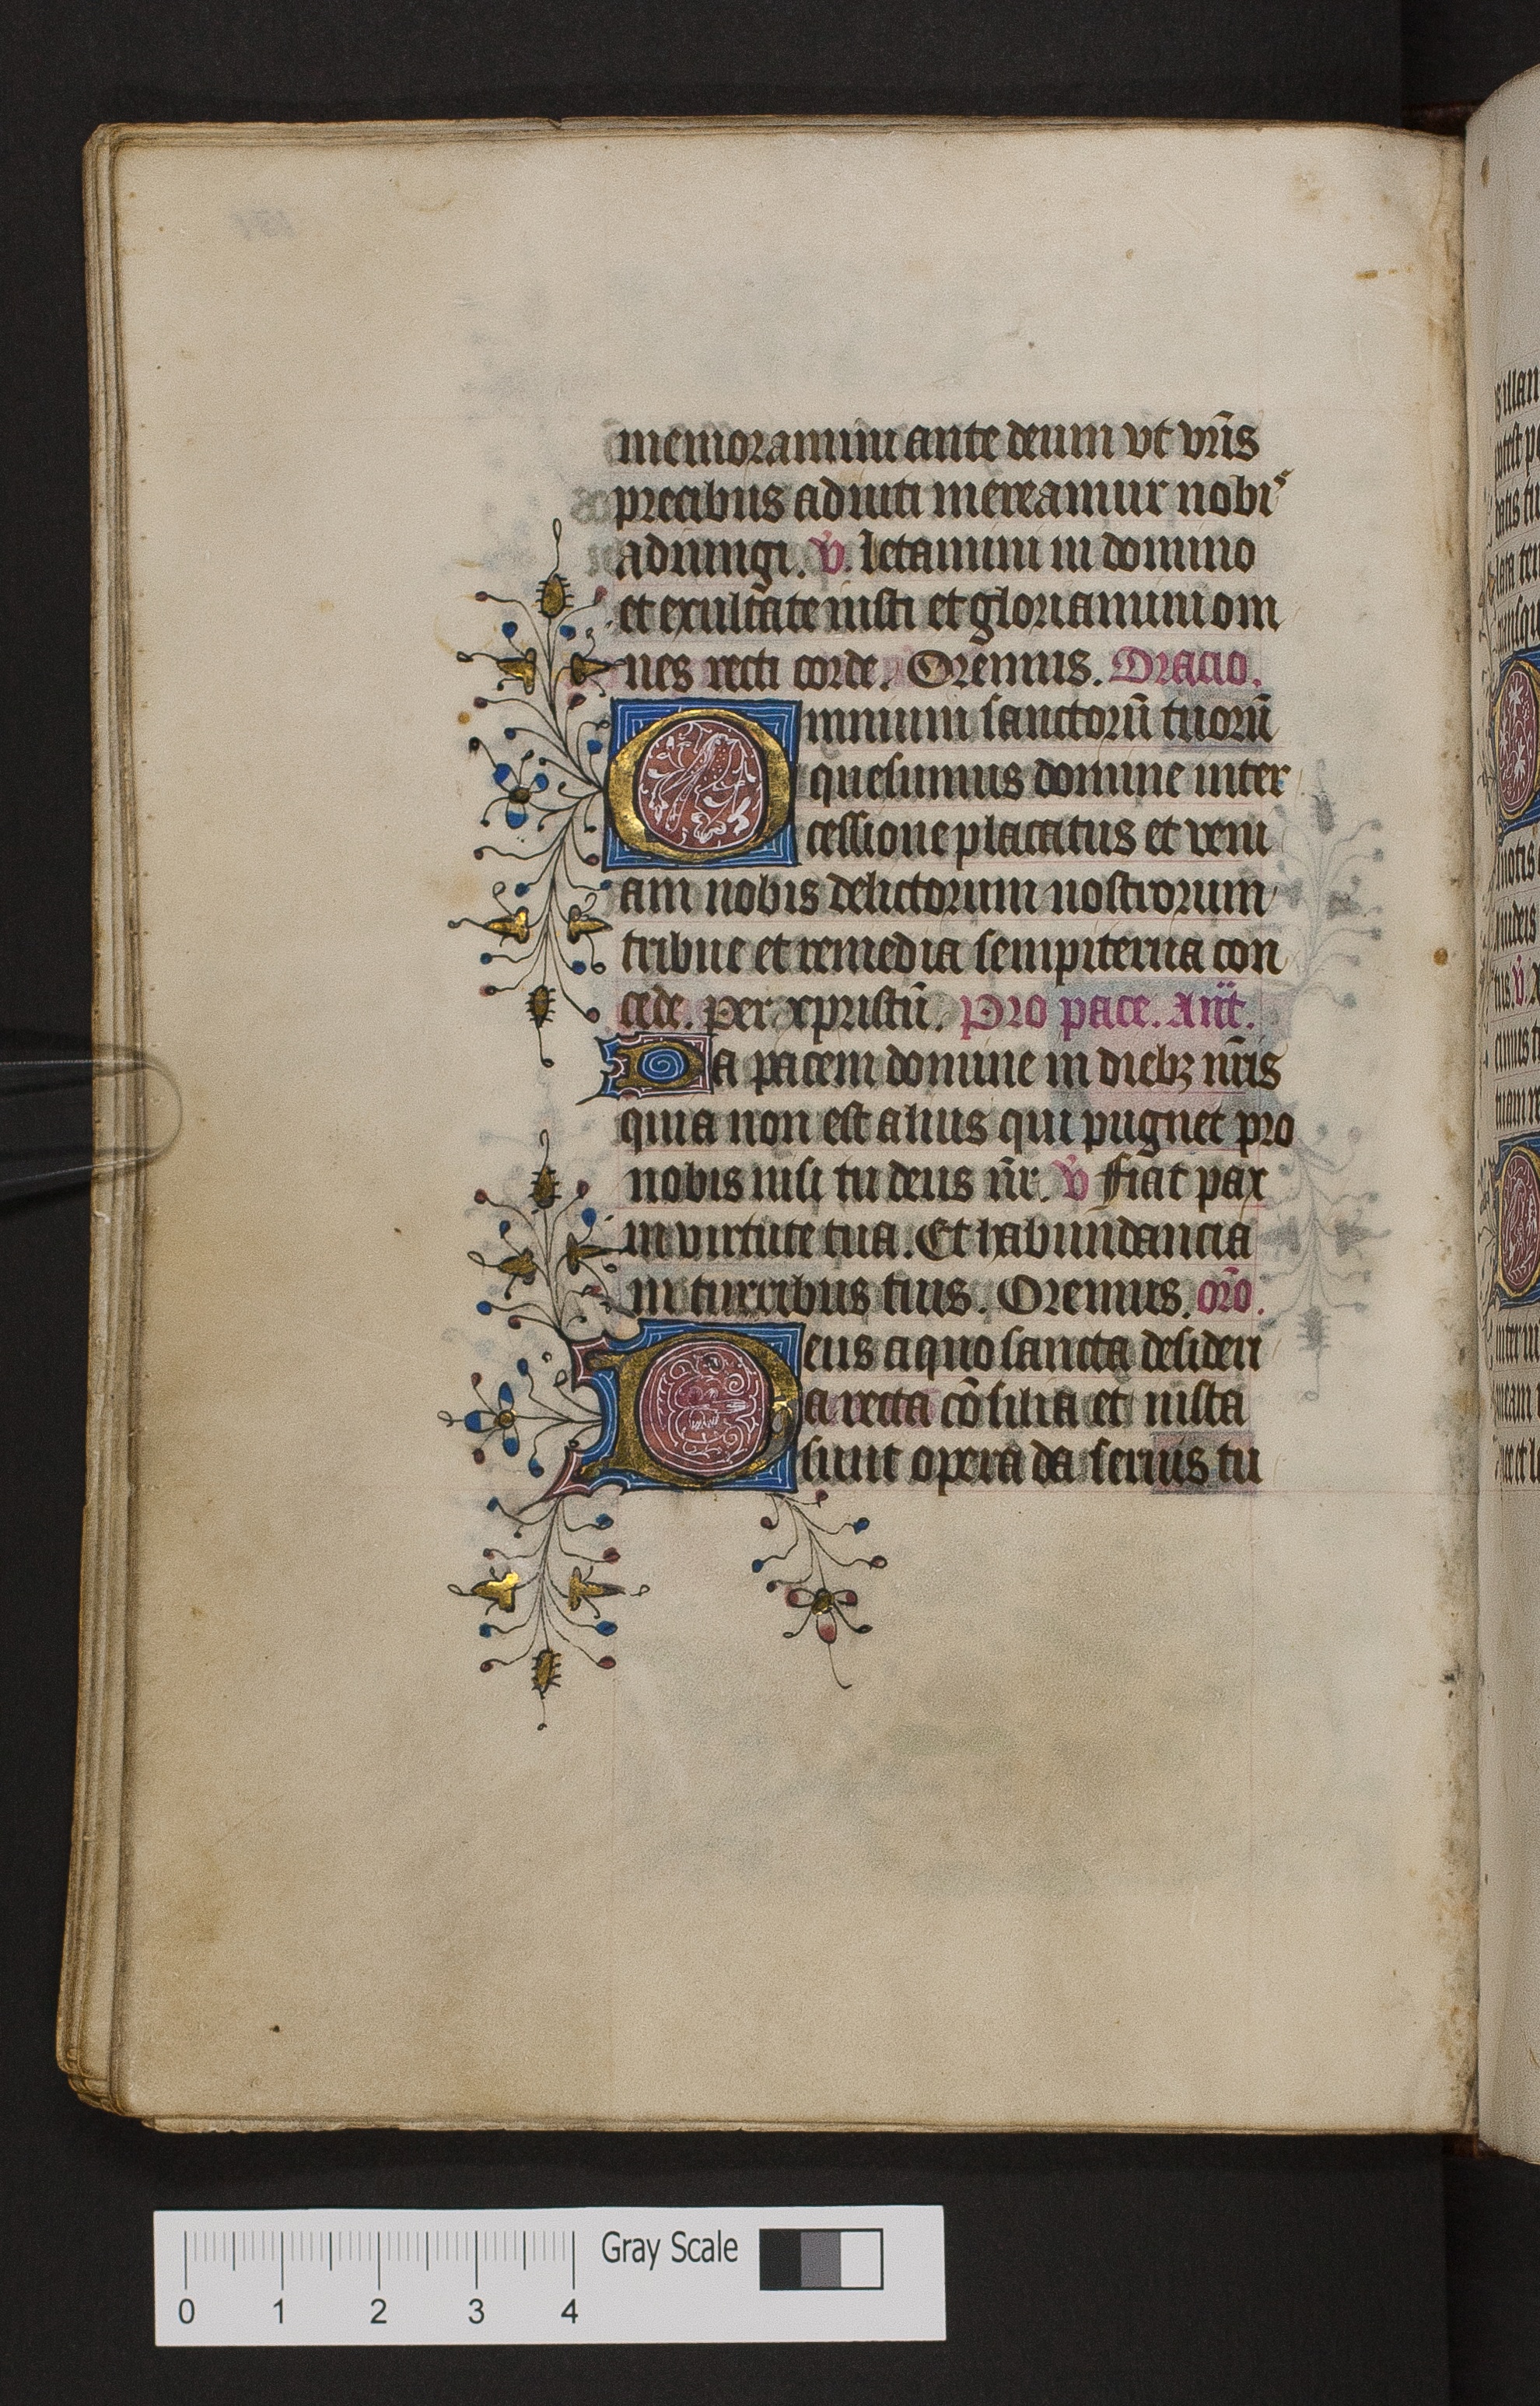 memoramini ante deum vt vr̄is
precibus adiuti mereamur nobis
adiungi. v̄. letamini in domino
et exultate iusti et gloriamini om
nes recti corde. Oremus. Oracio.
Omnium sanctorū tuorū
quesumus domine inter
cessione placatus et veni
am nobis delictorum nostrorum
tribue et remedia sempiterna con
cede. per xpristū. Pro pace. Ant̄.
Da pacem domine in dieb⁊ nr̄is
quia non est alius qui pugnet pro
nobis nisi tu deus nr̄. v̄ fiat pax
in virtute tua. Et habundancia
in turribus tuis. Oremus. or̄o.
Deus a quo sancta desideri
a recta cōsilia et iusta
sunt opera da seruis tu
Gray Scale
0 1 2 3 4